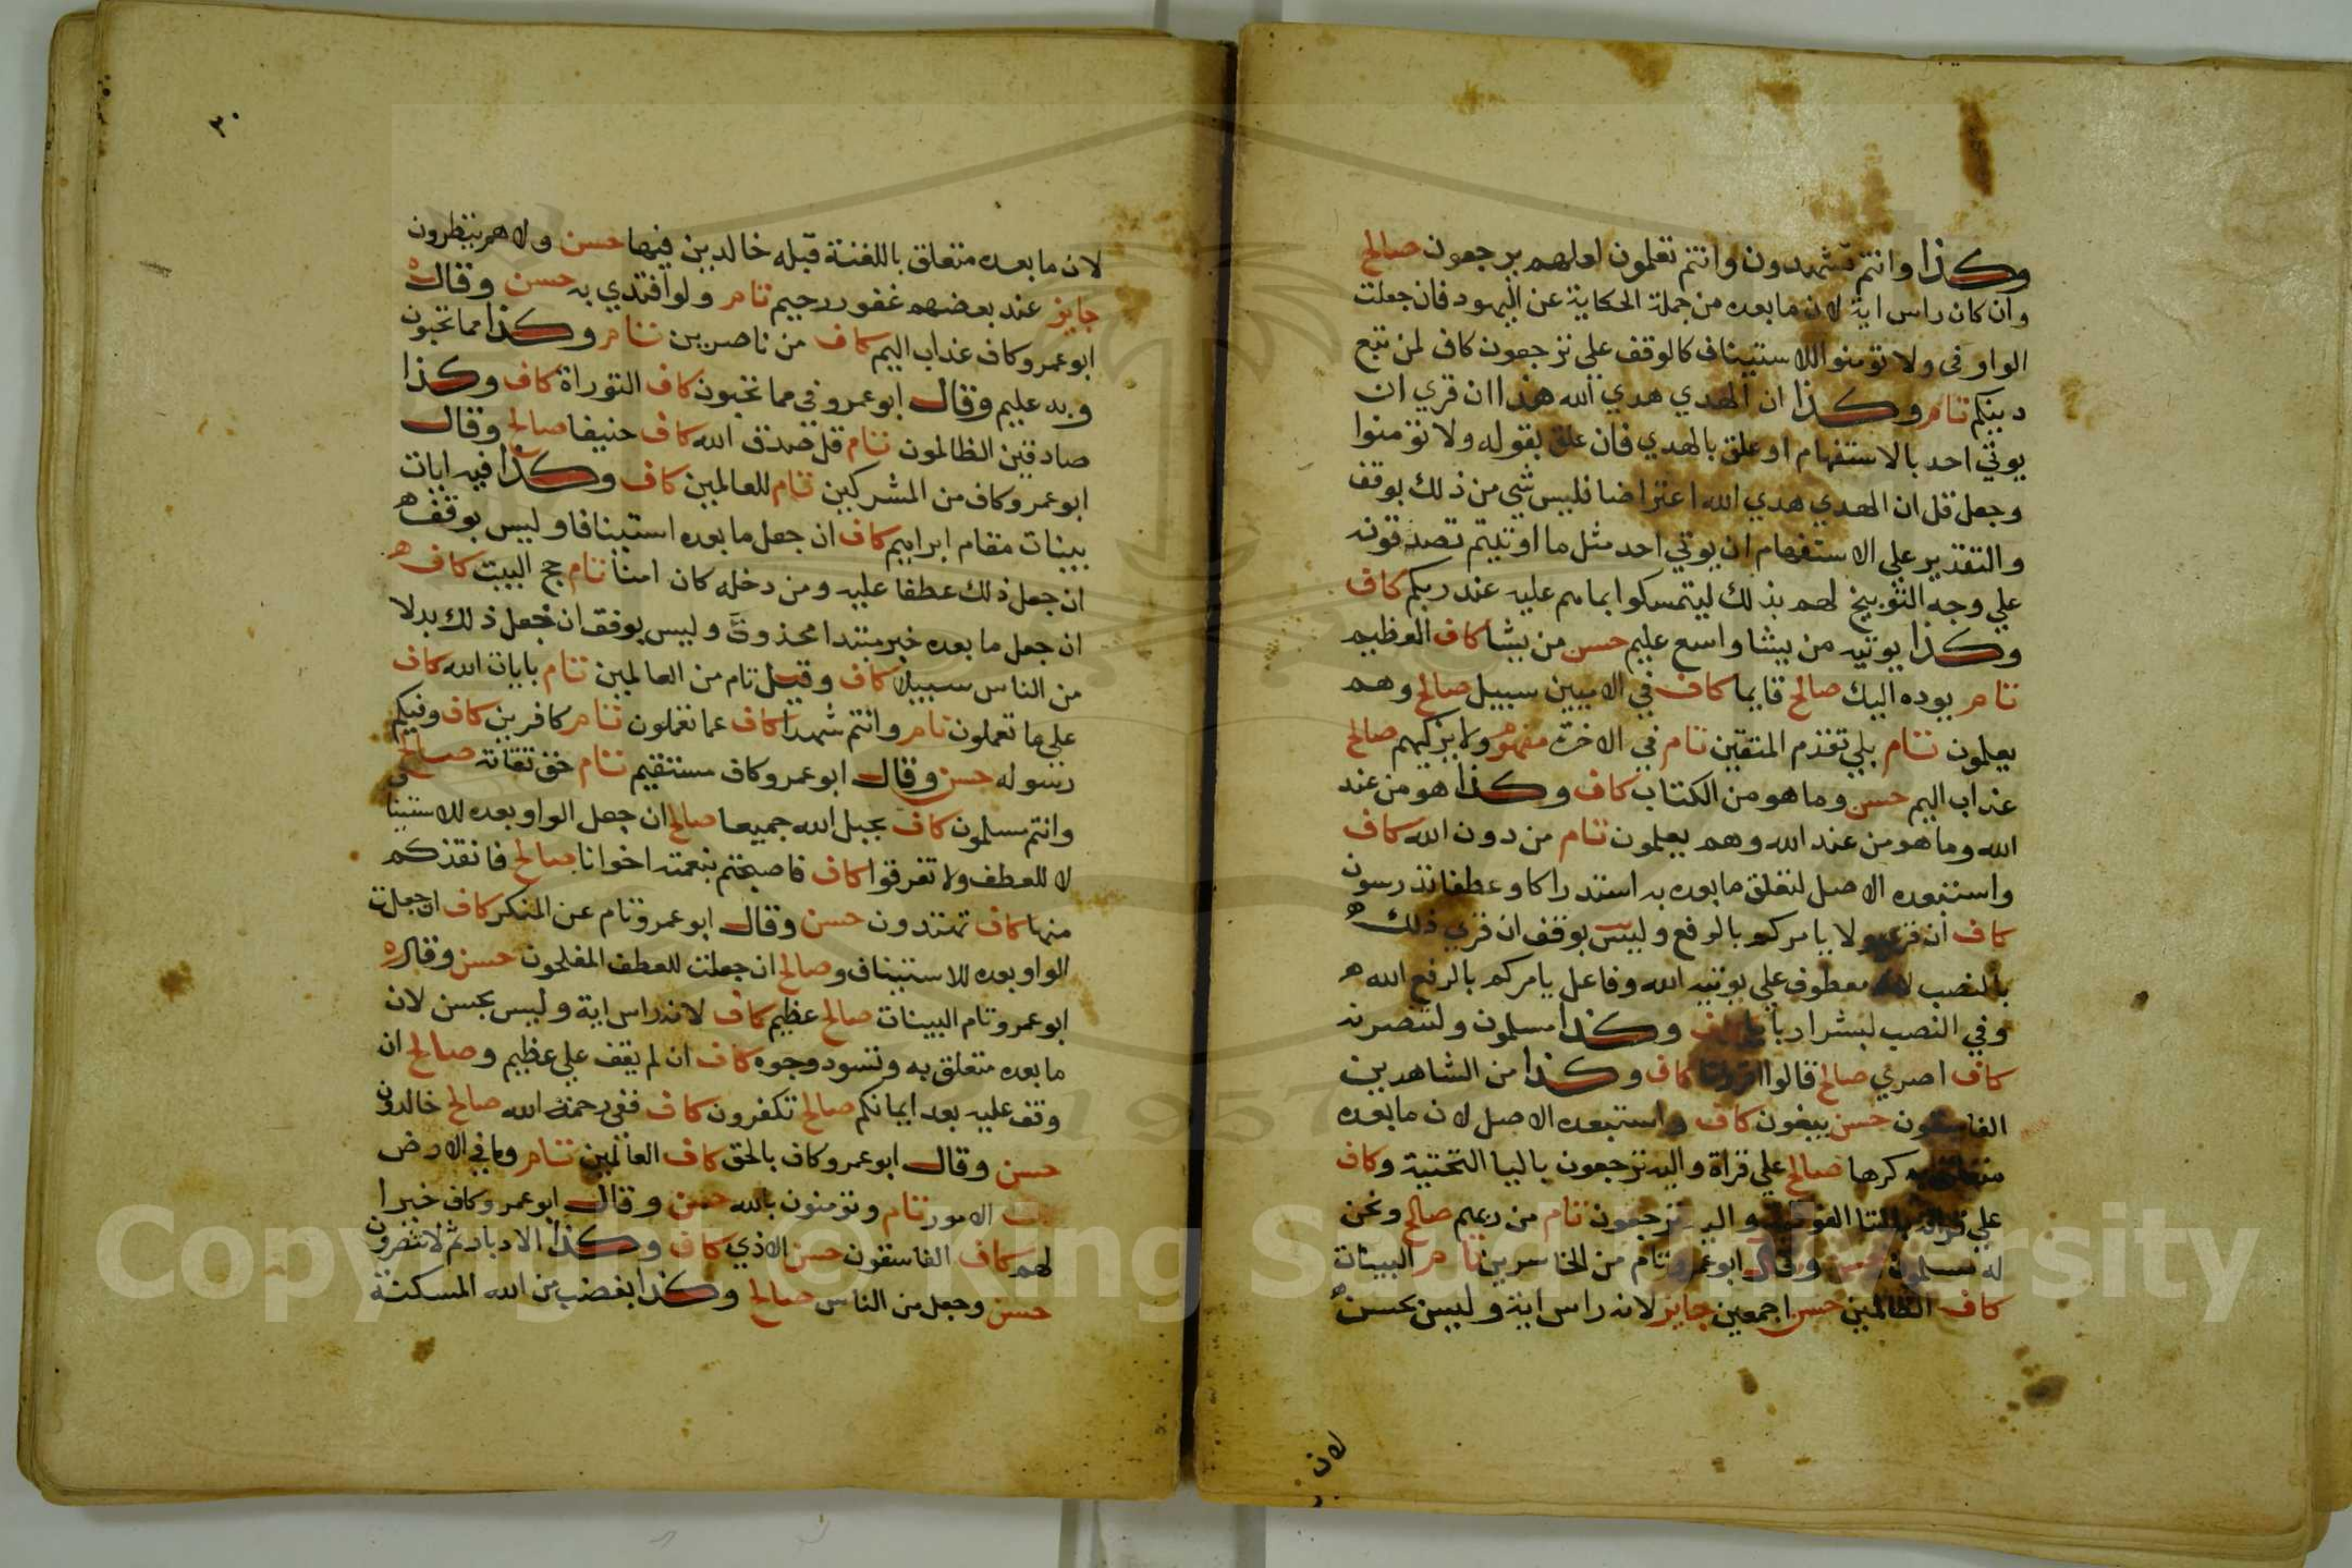 وكذا وانتم تشهدون وانتم تعلمون لعلهم يرجعون صالح
وان كان راس اية لان ما بعده من جملة الحكاية عن اليهود فان جعلت
الواو في ولا تومنوا للاستيناف كالوقف علي ترجعون كاف لمن تبع
دينكم تام وكذا ان الهدي هدي الله هذا ان قري ان
يوتي احد بالاستفهام او علق بالهدي فان علق بقوله ولا تومنوا
وجعل قل ان الهدي هدي الله اعتراضا فليس شي من ذلك بوقف
والتقدير علي الاستفهام ان يوتي احد مثل ما اوتيتم تصدقونه
علي وجه التوبيخ لهم بذلك ليتمسكوا بما هم عليه عند ربكم كاف
وكذا يوتيه من يشا واسع عليم حسن من يشا كاف العظيم
تام يوده اليك صالح قايما كاف في الاميين سبيل صالح وهم
يعلمون تام بلي تقدم المتقين تام في الاخرة مفهوم ولا يزكيهم صالح
عذاب اليم حسن وما هو من الكتاب كاف وكذا هو من عند
الله وما هو من عند الله وهم يعلمون تام من دون الله كاف
واستبعده الاصل لتعلق ما بعده به استدراكا وعطفا تدرسون
كاف ان قري ولا يامركم بالرفع وليس بوقف ان قري ذلك
بالنصب لانه معطوف علي يوتيه الله وفاعل يامركم بالرفع الله
وفي النصب لبشر اربابا كاف وكذا مسلمون ولتنصرنه
كاف اصري صالح قالوا اقررنا كاف وكذا من الشاهدين
الفاسقون حسن يبغون كاف واستبعده الاصل لان ما بعده
متعلق به كرها صالح علي قراة واليه ترجعون باليا التحتية وكاف
علي قراته بالتا الفوقية واليه ترجعون تام من ربهم صالح ونحن
له مسلمون حسن وقال ابو عمرو تام من الخاسرين تام البينات
كاف الظالمين حسن اجمعين جايز لانه راس اية وليس بحسن
لان
٣٠
لان ما بعده متعلق باللعنة قبله خالدين فيها حسن ولا هم ينظرون
جايز عند بعضهم غفور رحيم تام ولو افتدي به حسن وقال
ابو عمرو كاف عذاب اليم كاف من ناصرين تام وكذا مما تحبون
وبه عليم وقال ابو عمرو في مما تحبون كاف التوراة كاف وكذا
صادقين الظالمون تام قل صدق الله كاف حنيفا صالح وقال
ابو عمرو كاف من المشركين تام للعالمين كاف وكذا فيه ايات
بينات مقام ابراهيم كاف ان جعل ما بعده استينافا وليس بوقف
ان جعل ذلك عطفا عليه ومن دخله كان امنا تام حج البيت كاف
ان جعل ما بعده خبر مبتدا محذوف وليس بوقف ان جعل ذلك بدلا
من الناس سبيلا كاف وقيل تام من العالمين تام بايات الله كاف
علي ما تعملون تام وانتم شهدا كاف عما تعملون تام كافرين كاف وفيكم
رسوله حسن وقال ابو عمرو كاف مستقيم تام حق تقاته صالح
وانتم مسلمون كاف بحبل الله جميعا صالح ان جعل الواو بعده للاستينا
لا للعطف ولا تفرقوا كاف فاصبحتم بنعمته اخوانا صالح فانقذكم
منها كاف تهتدون حسن وقال ابو عمرو تام عن المنكر كاف ان جعلت
الواو بعده للاستيناف وصالح ان جعلت للعطف المفلحون حسن وقال
ابو عمرو تام البينات صالح عظيم كاف لانه راس اية وليس بحسن لان
ما بعده متعلق به وتسود وجوه كاف ان لم يقف علي عظيم وصالح ان
وقف عليه بعد ايمانكم صالح تكفرون كاف ففي رحمة الله صالح خالدون
حسن وقال ابو عمرو كاف بالحق كاف العالمين تام وما في الارض
الامور تام وتومنون بالله حسن وقال ابو عمرو كاف خيرا
لهم كاف الفاسقون حسن الا اذي كاف وكذا الادبار ثم لا تنصرون
حسن وحبل من الناس صالح وكذا بغضب من الله المسكنة
Copyright © King Saud University
1957